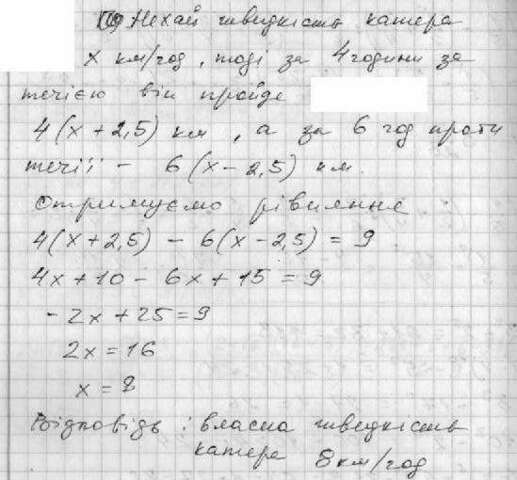 Нехай швидкість катера
x км/год, тоді за 4 години за
течією він пройде
4(x+2,5) км, а за 6 год проти
течії - 6(x-2,5) км.
Отримуємо рівняння
4(x+2,5) - 6(x-2,5) = 9
4x+10 - 6x+15 = 9
-2x+25=9
2x=16
x=8
Відповідь: власна швидкість
катера 8км/год